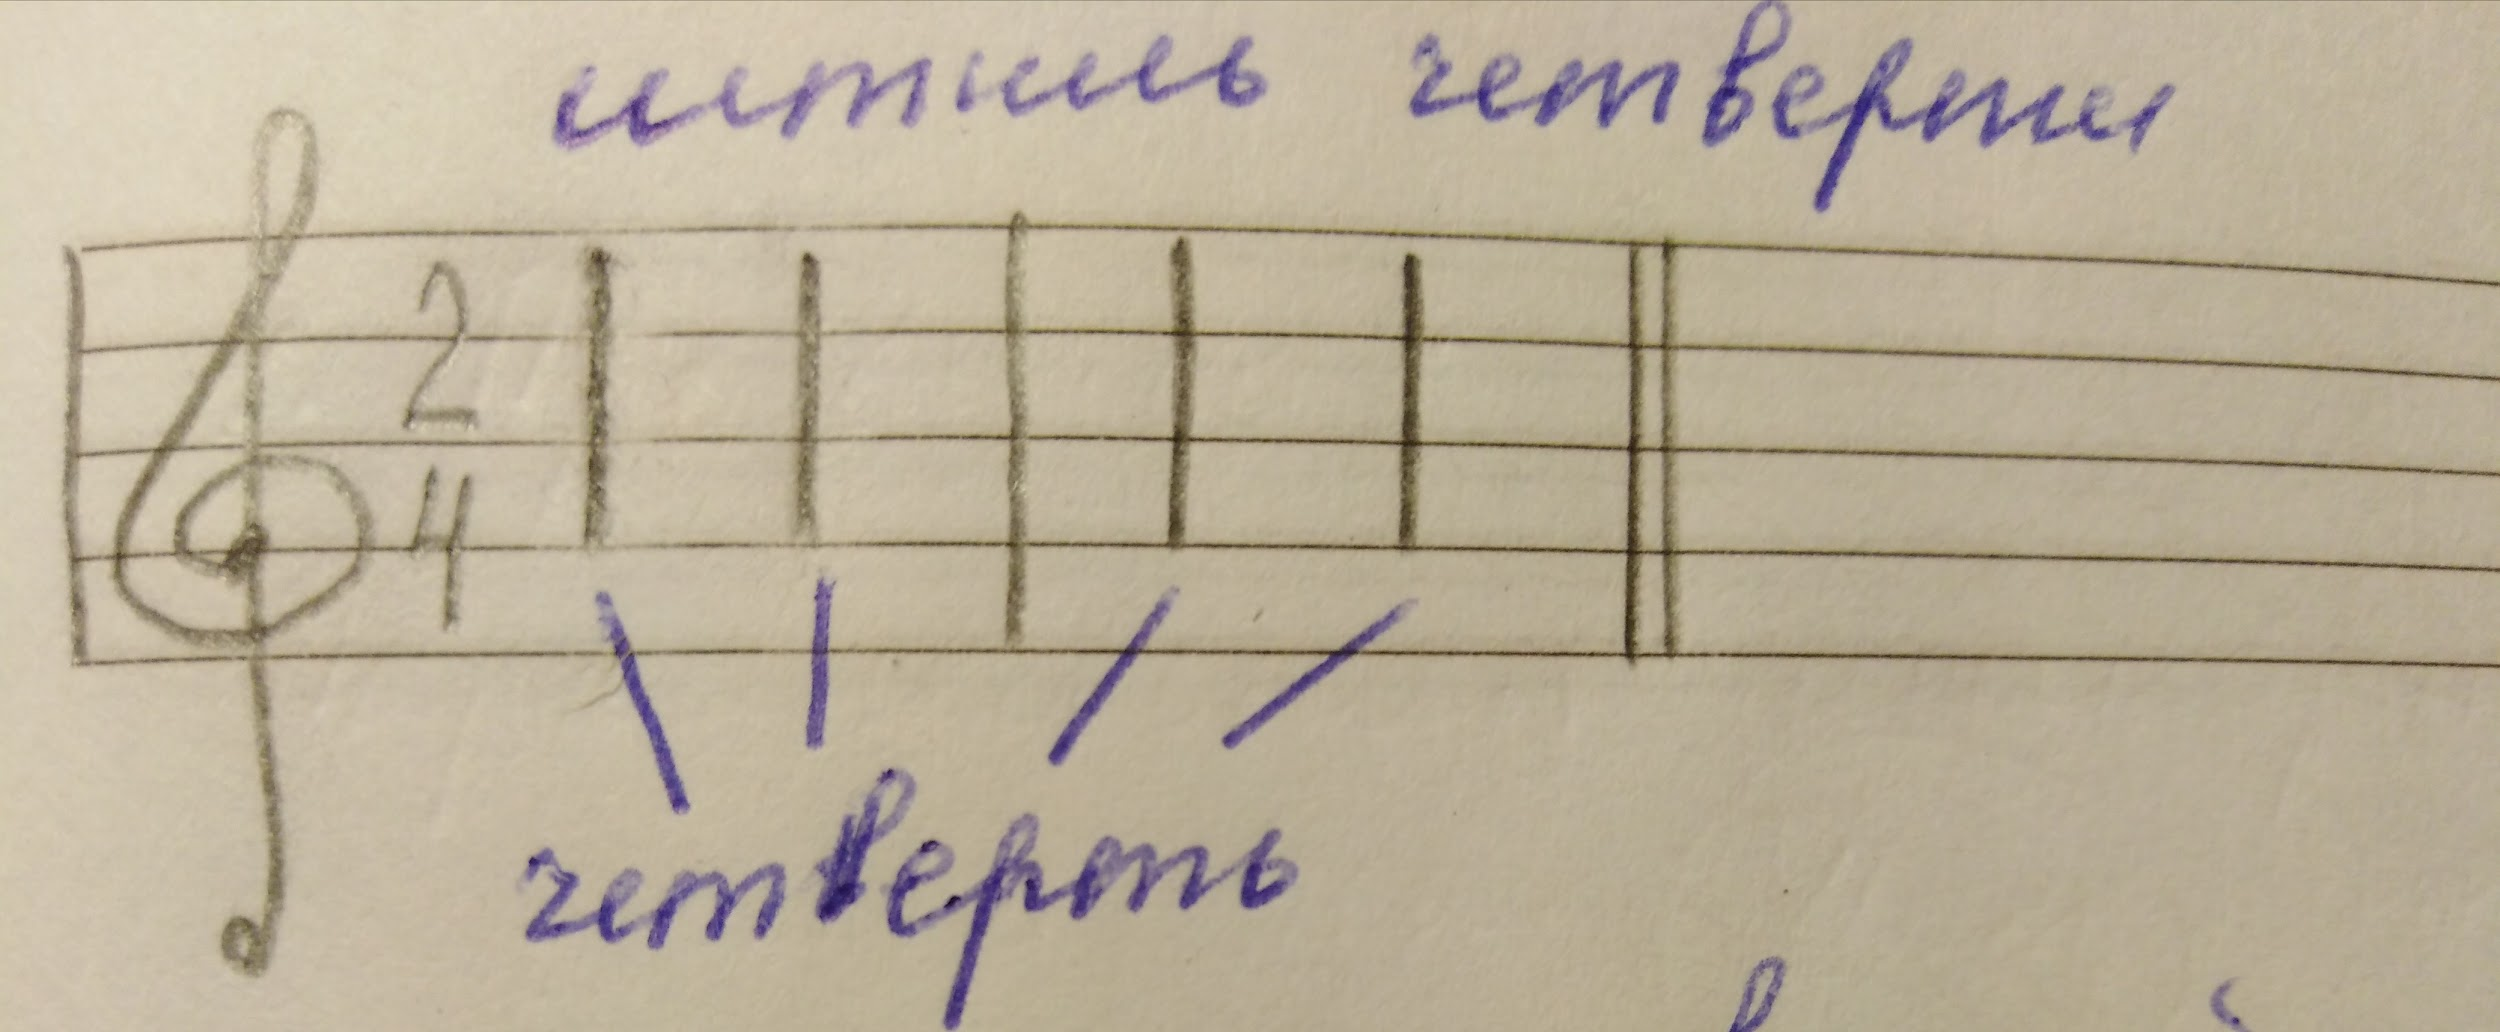 штиль четверти
2
4
четверть